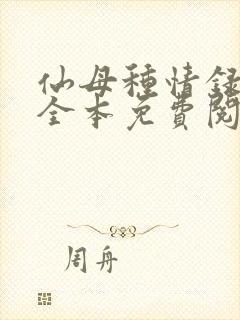 仙母種情録
全本免費閱
周舟